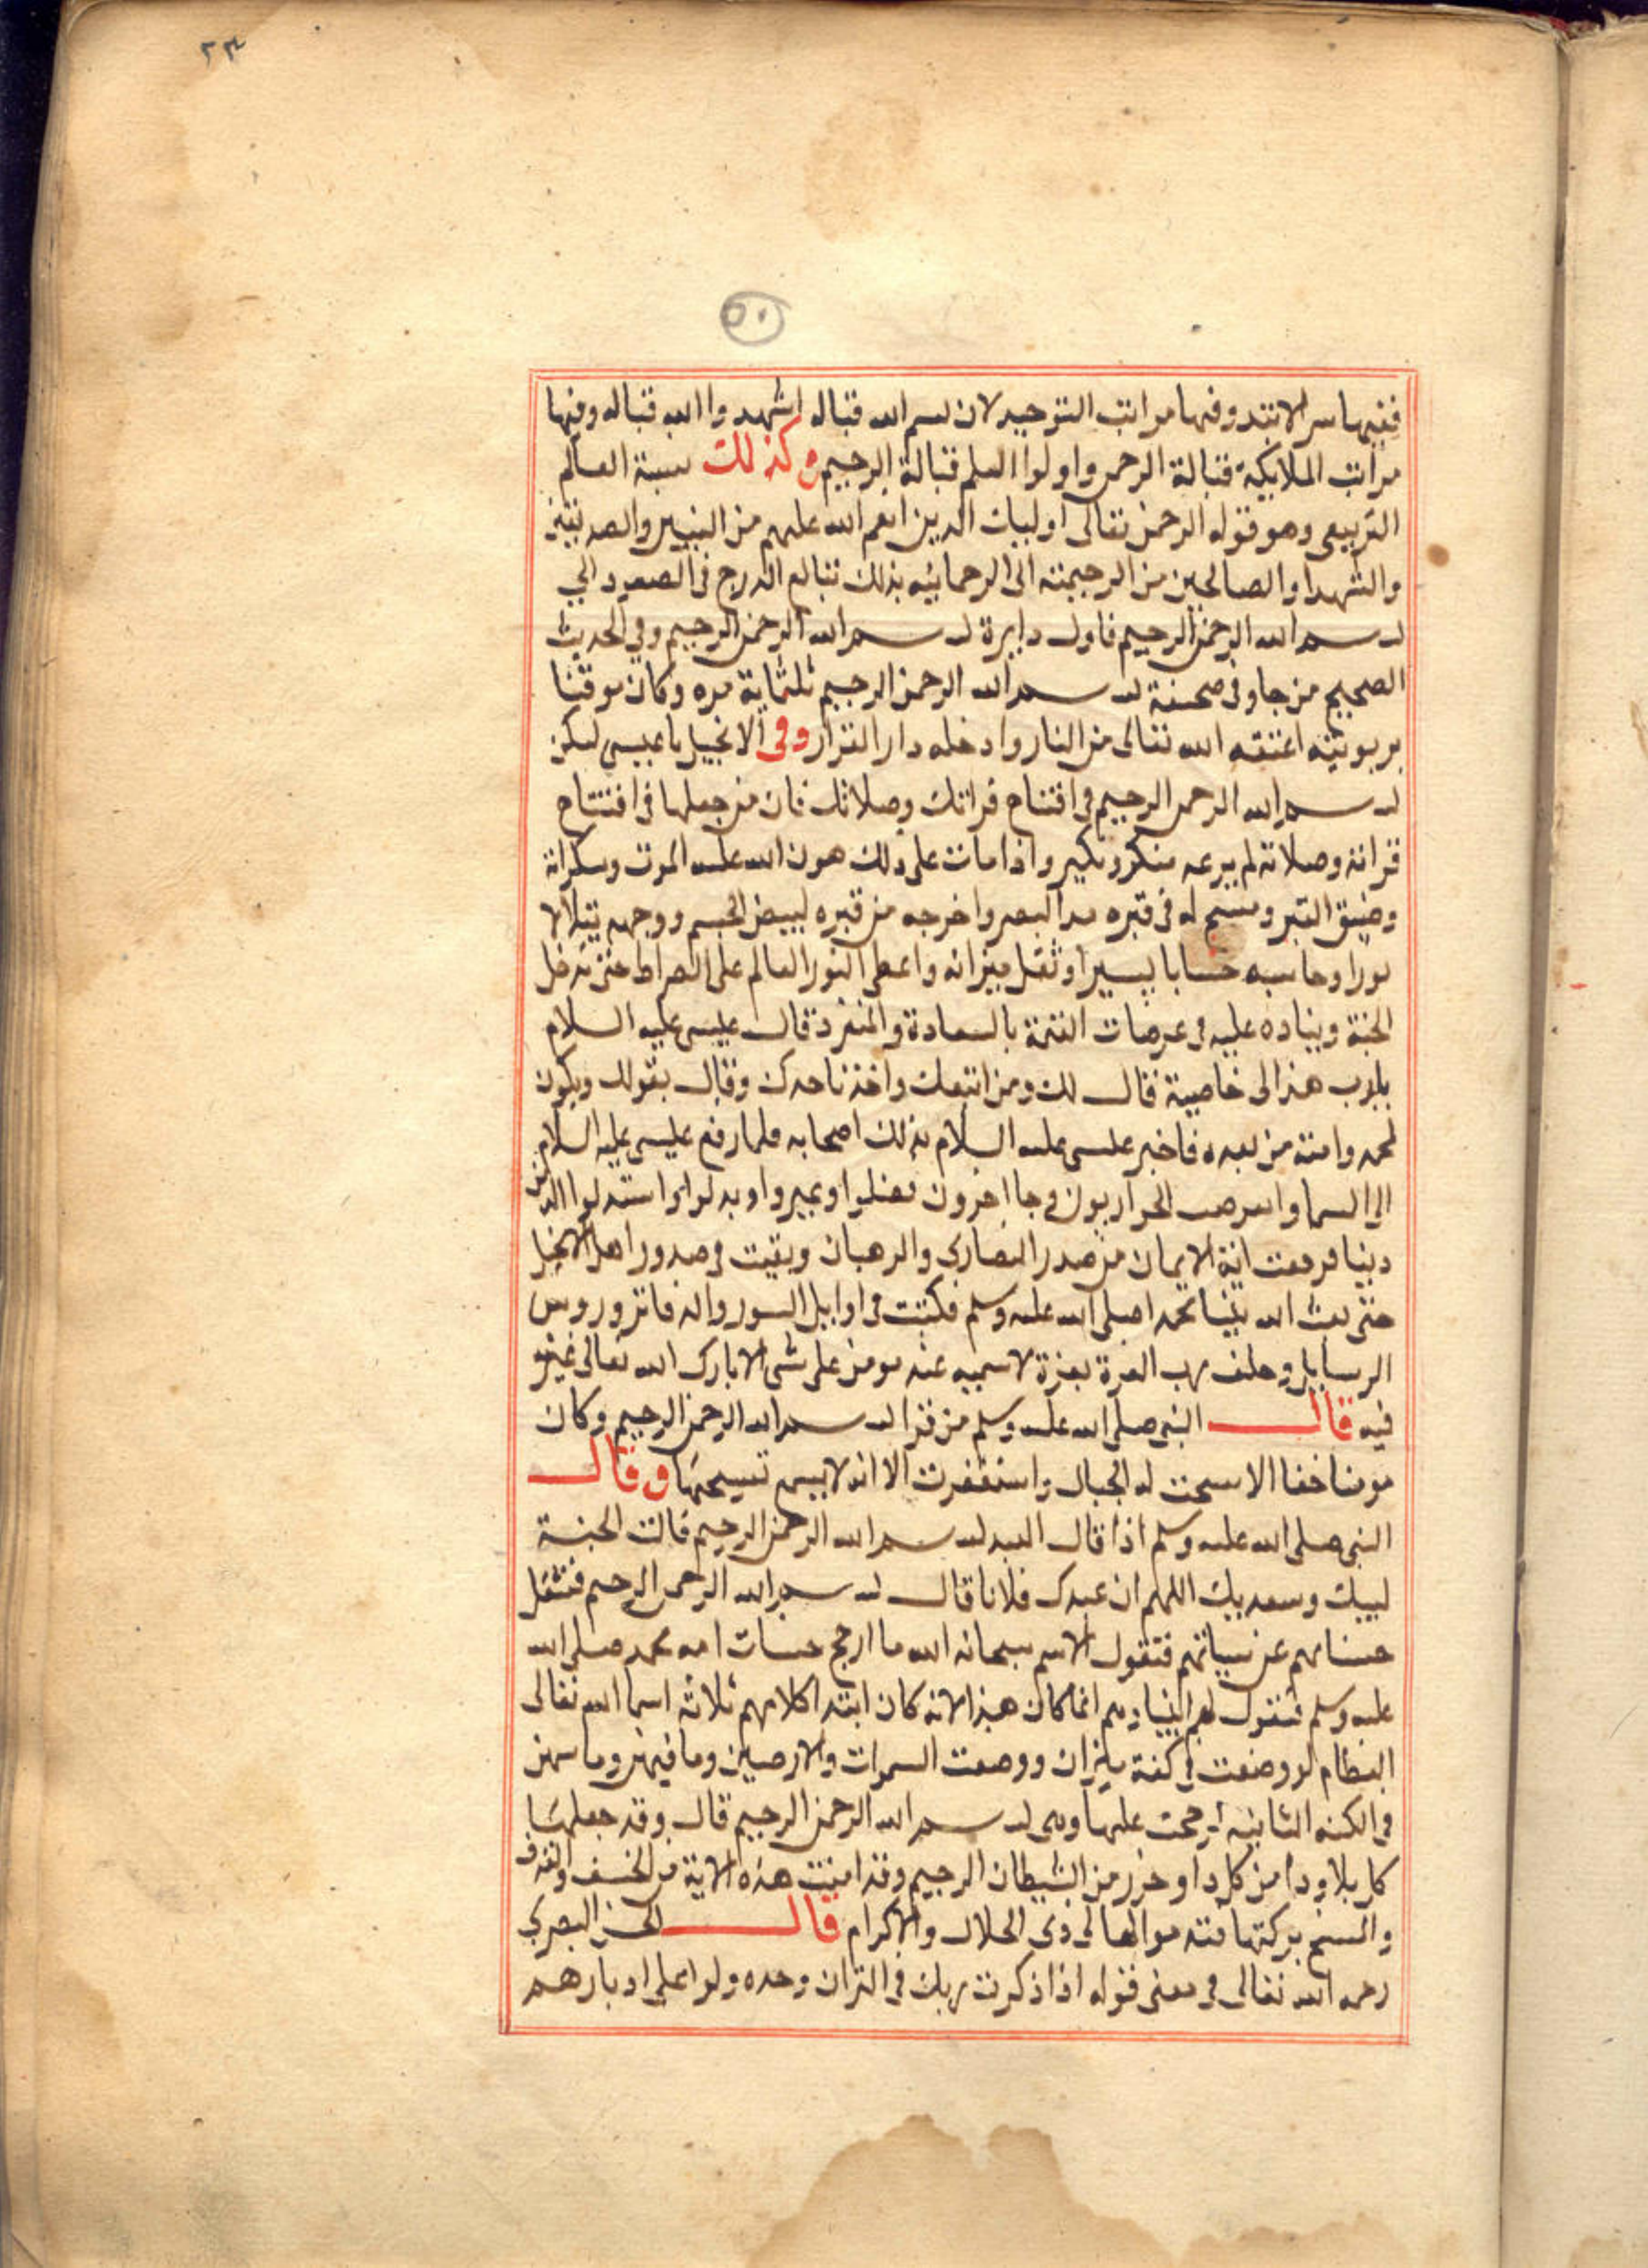 ٢٣
٥٠
ففيها سر الابتد وفيها مراتب التوحيد لان بسم الله قباله اشهدوا الله قباله وفيها
مراتب الملايكة قبالة الرحمن واولوا العلم قبالة الرحيم وكذلك نسبة العالم
التربيعي وهو قوله الرحمن تعالى اوليات الدين انعم الله عليهم من النبيين والصديقين
والشهدا والصالحين من الرحيمية الى الرحمانيه بذلك تتابع الدرج في الصعود الي
بسم الله الرحمن الرحيم فاول دايرة بسم الله الرحمن الرحيم وفي الحديث
الصحيح من جا وفي صحيفة بسم الله الرحمن الرحيم ثلثماية مره وكان موقنا
بربوبيته اعتقه الله تعالى من النار وادخله دار القرار وفي الانجيل يا عيسى ليكن
بسم الله الرحمن الرحيم في افتتاح قراتك وصلاتك فان من جعلها في افتتاح
قراته وصلاته لم يرعه منكر ونكير واذا مات على ذلك هون الله عليه الموت وسكراته
وضيق القبر وفسح له في قبره مد البصر واخرجه من قبره ابيض الجسم ووجهه يتلالا
نورا وحاسبه حسابا يسيرا وثقل ميزانه واعطى النور العالم على الصراط حتى تدخل
الجنة ويناده عليه في عرصات القيمة بالسعادة والمغفرة قال عيسى عليه السلام
يارب هذا لى خاصية قال لك ومن اتبعك واخذ ناحدك وقال بقولك ويكون
لمحمد وامته من بعده فاخبر عيسى عليه السلام بذلك اصحابه فلما رفع عيسى عليه السلام
الى السما وانقرضت الحواريون وجا اخرون فضلوا وغيروا وبدلوا واستدلوا الدين
دينا فرفعت اية الايمان من صدر النصارى والرهبان وبقيت في صدور اهل الانجيل
حتى بعث الله نبينا محمدا صلى الله عليه وسلم فكتبت في اوايل السور والدفاتر وروس
الرسايل وحلف رب العزة بعزة لا سميه عبد مومن على شي الا بارك الله تعالى
فيه قال النبي صلى الله عليه وسلم من قرا بسم الله الرحمن الرحيم وكان
مومنا حقا الا سبحت له الجبال واستغفرت الا انه لا يسمع تسبيحها وقال
النبي صلى الله عليه وسلم اذا قال العبد بسم الله الرحمن الرحيم قالت الجنة
لبيك وسعديك اللهم ان عبدك فلانا قال بسم الله الرحمن الرحيم فتثقل
حسناتهم عن سياتهم فتقول الامم سبحانه الله ما ارجح حسنات امه محمد صلى الله
عليه وسلم فتقول لهم انما كان هذا لانه كان ابتدا كلامهم ثلاثه اسما الله تعالى
العظام لو وضعت في كفة ميزان ووضعت السموات والارضين وما فيهن وما بينهن
في الكفه الثانيه لرجحت عليها وهى بسم الله الرحمن الرحيم قال وقد جعلها
كل بلا ودا من كل دا وحرز من الشيطان الرجيم وقد امنت هذه الاية من الخسف والقذف
والمسخ ببركتها منته هو المعالى ذى الجلال والاكرام قال الحسن البصري
رحمه الله تعالى في معنى قوله اذا ذكرت ربك في القران وحده ولوا على ادبارهم